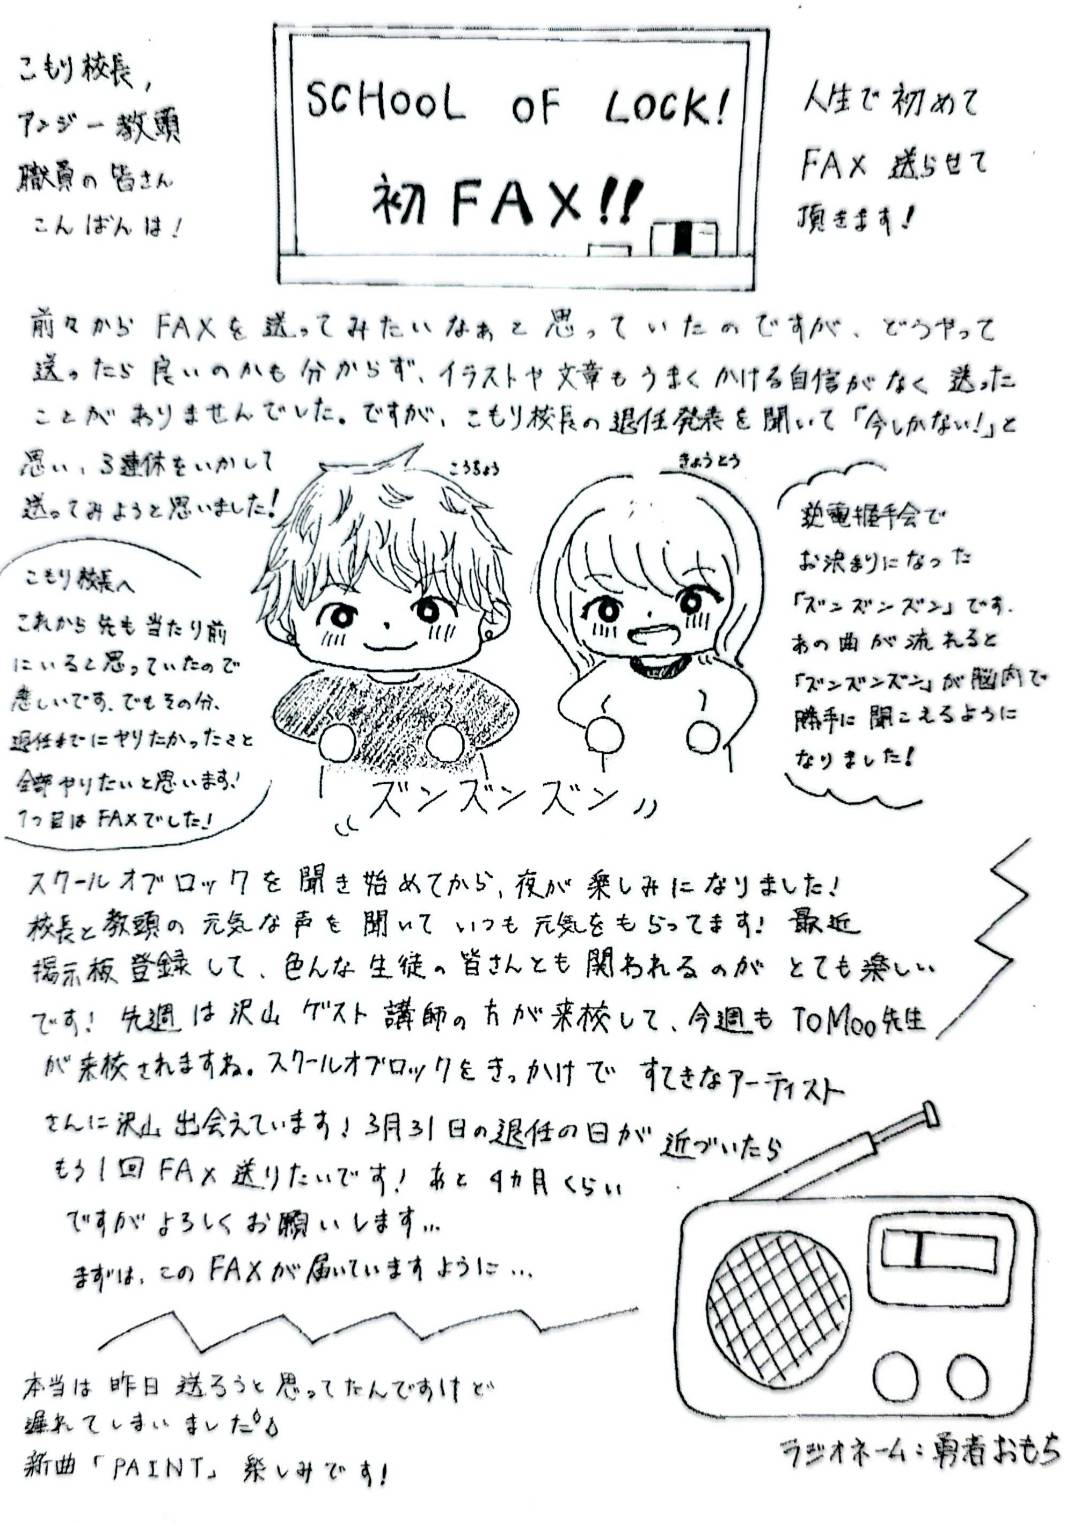 こもり校長,
アンジー教頭
職員の皆さん
こんばんは!
SCHOOL OF LOCK!
初FAX!!
人生で初めて
FAX送らせて
頂きます!
前々からFAXを送ってみたいなぁと思っていたのですが、どうやって
送ったら良いのかも分からず、イラストや文章もうまくかける自信がなく送った
ことがありませんでした。ですが、こもり校長の退任発表を聞いて「今しかない!」と
思い、3連休をいかして
送ってみようと思いました!
こうちょう
きょうとう
こもり校長へ
これから先も当たり前
にいると思っていたので
悲しいです、でもその分、
退任までにやりたかったこと
全部やりたいと思います!
1つ目はFAXでした!
逆電握手会で
お決まりになった
「ズンズンズン」です.
あの曲が流れると
「ズンズンズン」が脳内で
勝手に聞こえるように
なりました!
ズンズンズン
スクールオブロックを聞き始めてから、夜が楽しみになりました!
校長と教頭の元気な声を聞いていつも元気をもらってます! 最近
掲示板登録して、色んな生徒の皆さんとも関われるのがとても楽しい
です! 先週は沢山ゲスト講師の方が来校して、今週もTOMOO先生
が来校されますね。スクールオブロックをきっかけですてきなアーティスト
さんに沢山出会えています!3月31日の退任の日が近づいたら
もう1回FAX送りたいです! あと4カ月くらい
ですがよろしくお願いします...
まずは、このFAXが届いていますように...
本当は昨日送ろうと思ってたんですけど
遅れてしまいました
新曲「PAINT」楽しみです!
ラジオネーム:勇者おもち